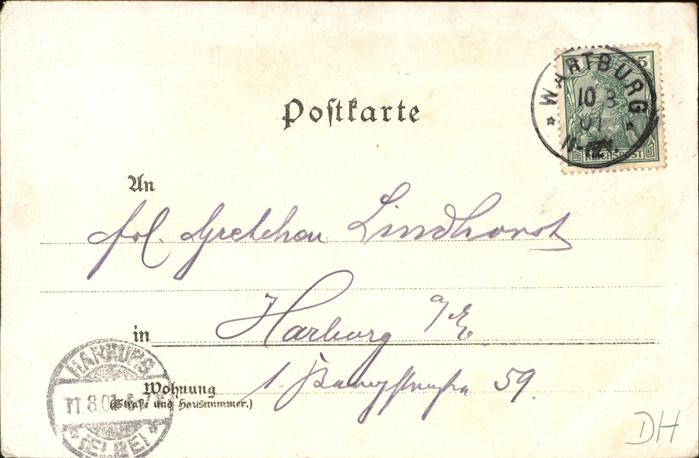 WARTBURG
10 8
01
5
REICHSPOST
Postkarte
An
Frl. Gretchen Lindhorst
in Harburg a/E.
HARBURG
11.8.01
(ELBE)
Wohnung
(Straße und Hausnummer.)
1. 59.
DH